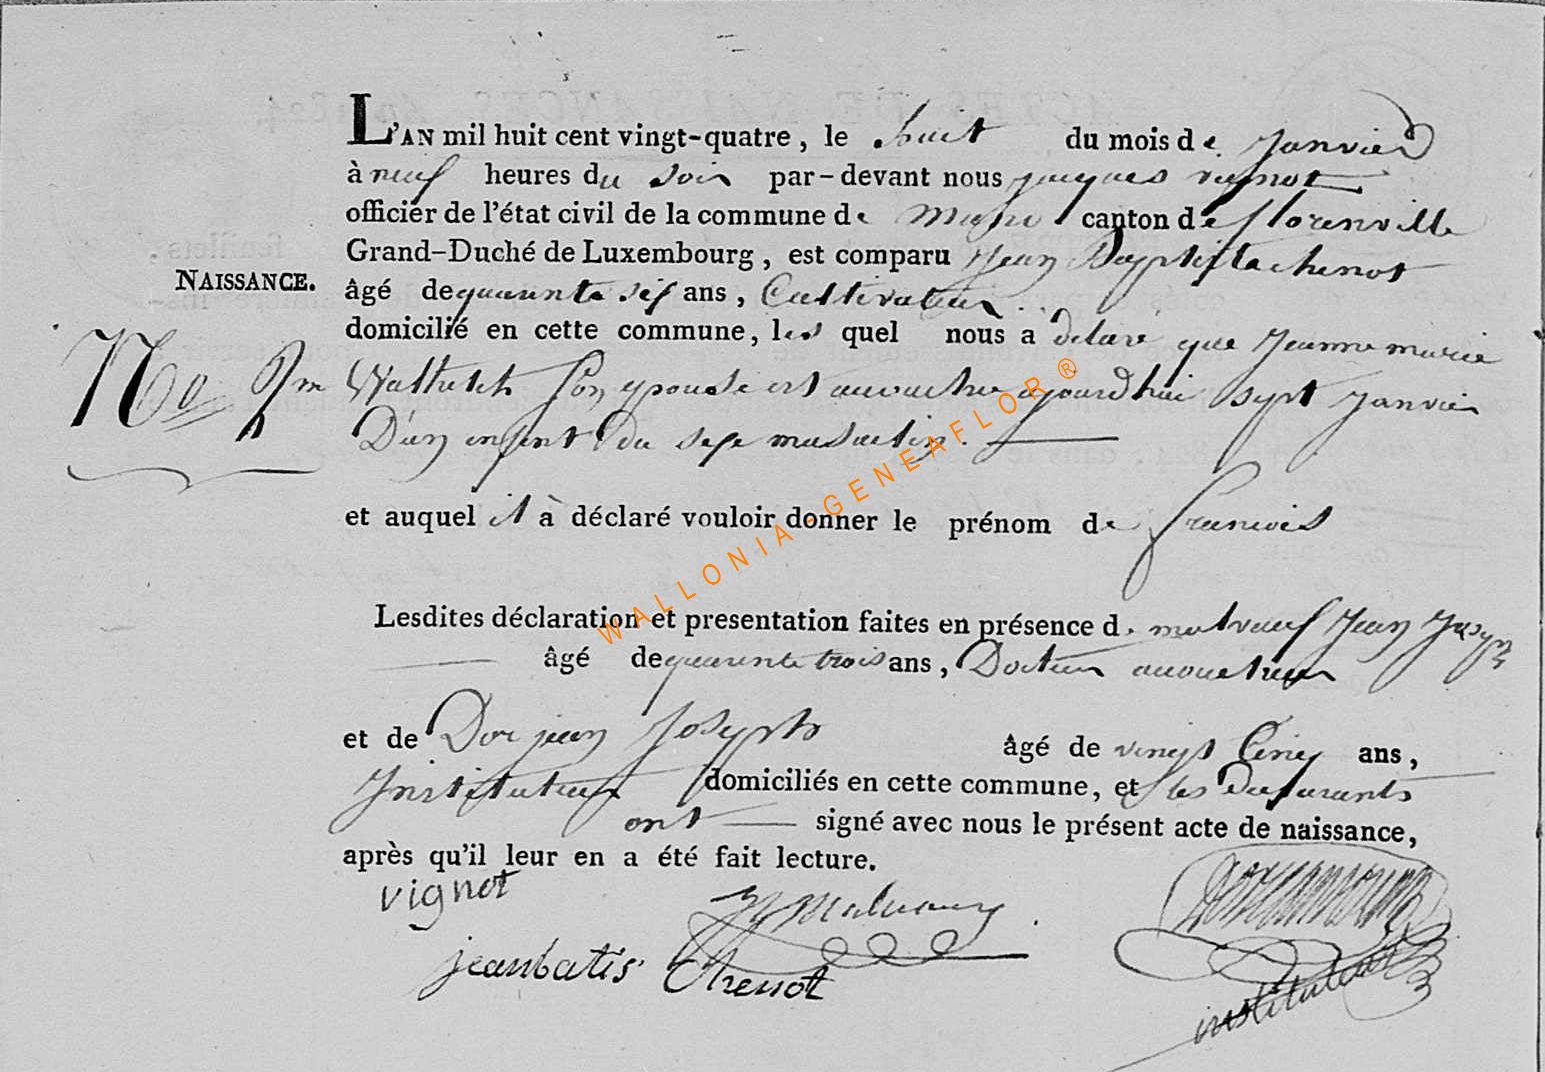 L'AN mil huit cent vingt-quatre, le huit du mois de Janvier
à neuf heures du soir par-devant nous jacques vignot
officier de l'état civil de la commune de muno canton de florenville
Grand-Duché de Luxembourg, est comparu Jean Baptiste chenot
NAISSANCE.
âgé de quarante six ans, Cultivateur
domicilié en cette commune, le quel nous a declaré que Jeanne marie
No 2m
son epouse est accouchee ajourdhui sept janvier
D'un enfent du sexe masculin.
et auquel il à déclaré vouloir donner le prénom de francois
Lesdites déclaration et presentation faites en présence de malvaux Jean
âgé de quarente trois ans, Docteur accoucheur
et de Dorjean Joseph âgé de vingt Cinq ans,
Instituteur domiciliés en cette commune, et les
ont signé avec nous le présent acte de naissance,
après qu'il leur en a été fait lecture.
vignot
jeanbatis. Chenot
instituteur
WALLONIA-GENEAFLOR ®